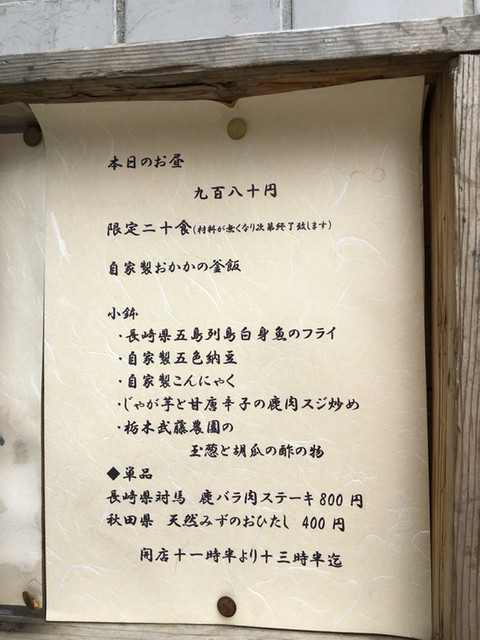 本日のお昼
九百八十円
限定二十食(材料が無くなり次第終了致します)
自家製おかかの釜飯
小鉢
・長崎県五島列島白身魚のフライ
・自家製五色納豆
・自家製こんにゃく
・じゃが芋と甘唐辛子の鹿肉スジ炒め
・栃木武藤農園の
玉葱と胡瓜の酢の物
◆単品
長崎県対馬 鹿バラ肉ステーキ800円
秋田県 天然みずのおひたし 400円
開店十一時半より十三時半迄